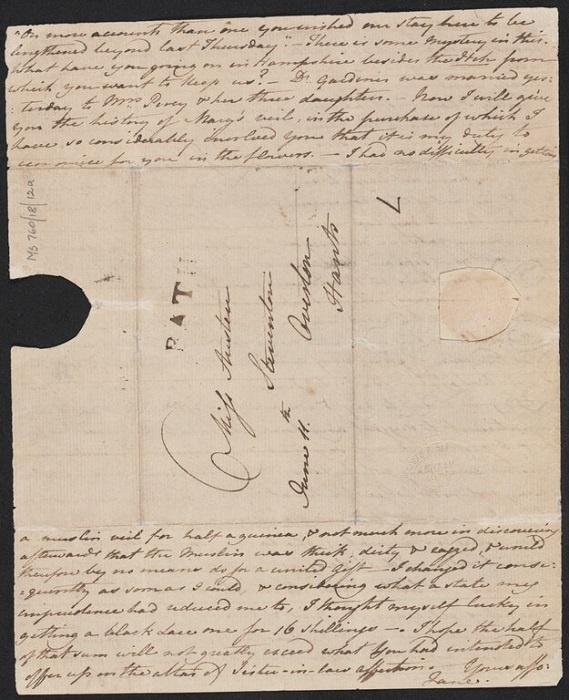 "On more accounts than one you wished our stay here to be
lengthened beyond last Thursday" – There is some Mystery in this.
What have you going on in Hampshire besides the Itch from
which you want to keep us? – Dr. Gardiner was married yes:
:terday to Mrs Percy & her three daughters. – Now I will give
you the history of Mary's veil, in the purchase of which I
have so considerably involved you that it is my duty to
economise for you in the flowers. – I had no difficulty in getting
MS 760/18/12a
BATH
7
Miss Austen
Steventon
Overton
Hants
June 11.th
a muslin veil for half a guinea, & not much more in discovering
afterwards that the Muslin was thick, dirty & ragged, & would
therefore by no means do for a united Gift – I changed it conse:
:quently as soon as I could, & considering what a state my
imprudence had reduced me to, I thought myself lucky in
getting a black Lace one for 16 shillings –. I hope the half
of that sum will not greatly exceed what You had intended to
offer up on the altar of Sister-in-law affection. – Yours aff:
Jane.